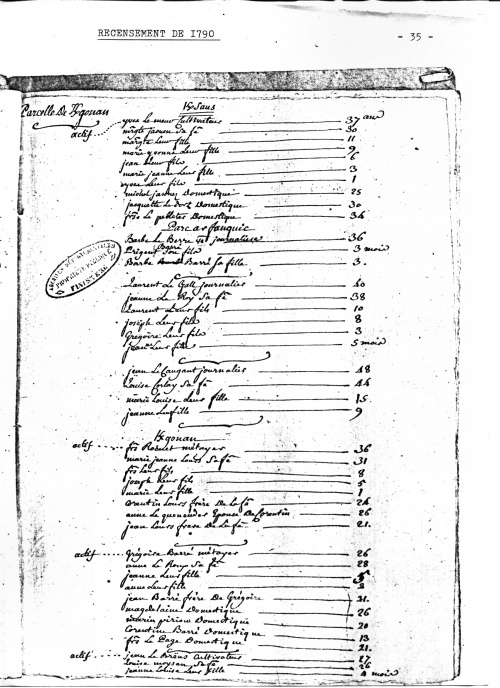 RECENSEMENT DE 1790
- 35 -
Parcelle De Kgonan
actif
yves Le meur Cultivateur 37 ans
30
margte Leur fille 11
marie yvonne Leur fille 9
jean Leur fils 6
marie jeanne Leur fille 3
yves Leur fils 1
michel Domestique 25
jacquette Le Domestique 30
frs Le pelleter Domestique 34
Parc ar
Barbe Le Berre journaliere 36
Prigent Barré Son fils 3 mois
Barbe Barré Sa fille 3
ARCHIVES DEPARTEMENTALES
FINISTERE
Laurent Le Gall journalier 40
jeanne Le Roy Sa fe 38
Laurent Leur fils 10
joseph Leur fils 8
Gregoire Leur fils 3
Leur fille 5 mois
jean Le journalier 48
Louise Sa fe 44
marie Louise Leur fille 15
jeanne Leur fille 9
Kgonan
actif frs métayer 36
marie jeanne Lours Sa fe 31
frs Leur fils 8
joseph Leur fils 5
marie Leur fille 1
Corentin Lours frère De La fe 24
anne Le Epouse De Corentin 26
jean Lours frere De La fe 21
actif Grégoire Barré métayer 26
anne Le Roux Sa fe 28
jeanne Leur fille
anne Leur fille
jean Barré frère De Grégoire 31
magdelaine Domestique 26
Domestique 20
Corentine Barré Domestique 13
frs Le Page Domestique 21
actif jean Le Cultivateur 27
Louise moysan Sa fe 26
jeanne Louise Leur fille 4 mois